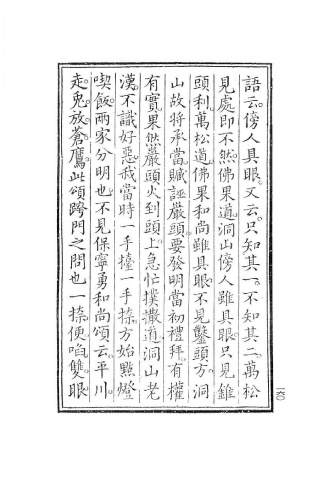 語云。傍人具眼。又云。只知其一。不知其二。萬松
見處即不然。佛果道。洞山傍人雖具眼。只見錐
頭利。萬松道。佛果和尚雖具眼。不見鑿頭方。洞
山故將承當。贓誣巖頭。要發明當初禮拜。有權
有實。果然巖頭火到頭上。急忙撲撒道。洞山老
漢。不識好惡。我當時一手擡一手搽。方始點燈
喫飯。兩家分明也。不見保寧勇和尚頌云。平川
走兎放蒼鷹。此頌跨門之問也。一搽便㗖雙眼
一六〇